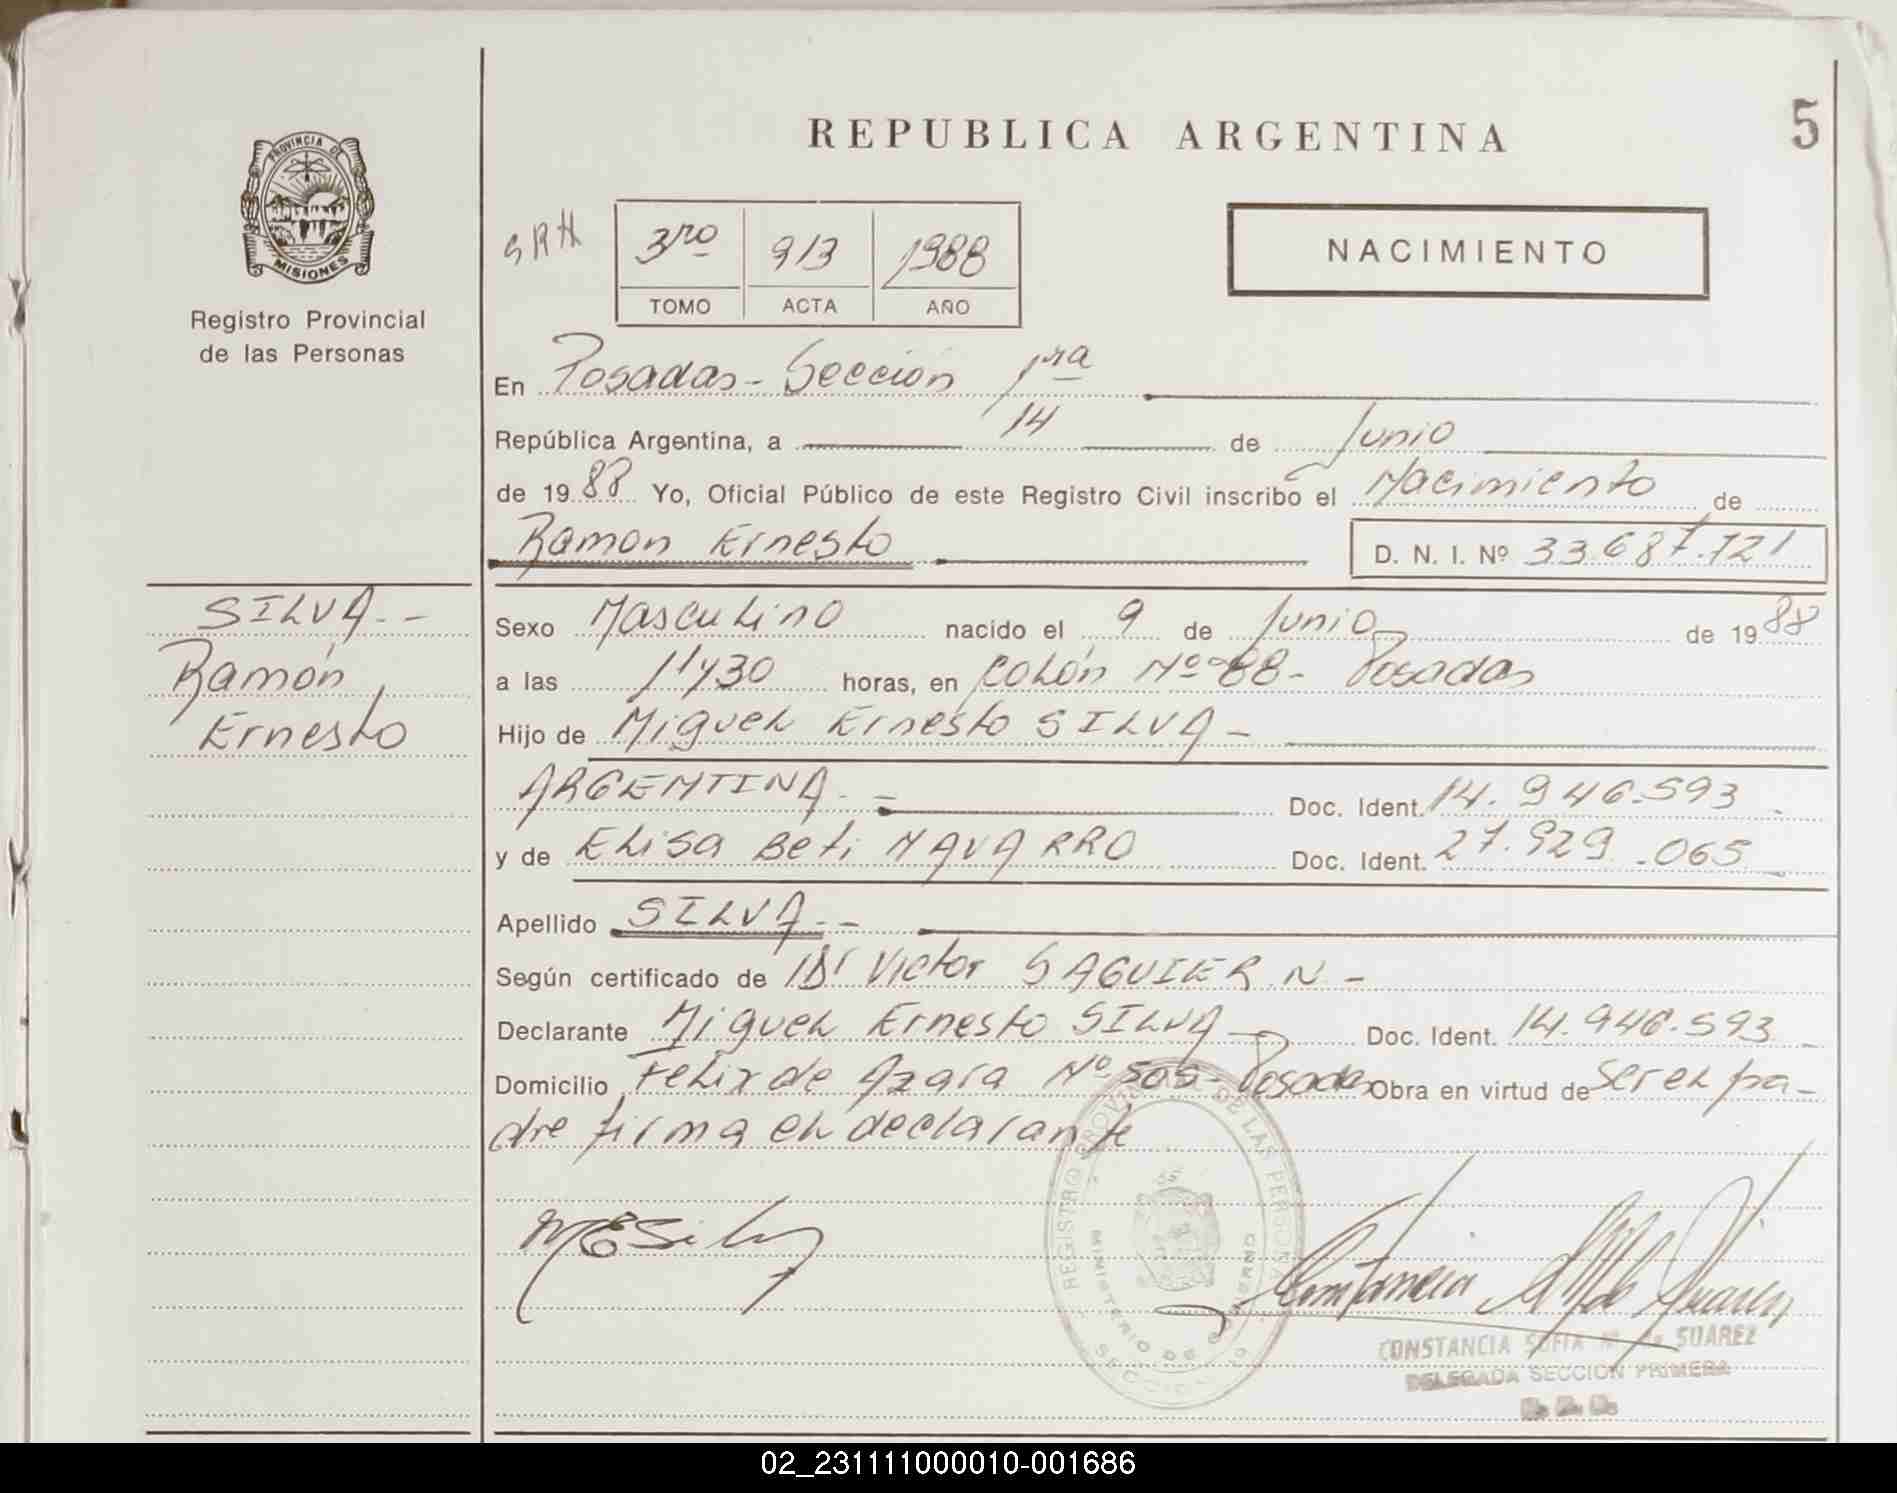 REPUBLICA ARGENTINA
5
PROVINCIA DE
MISIONES
Registro Provincial
de las Personas
SRH
3ro 913 1988
TOMO ACTA AÑO
NACIMIENTO
En Posadas - Sección 1ra
República Argentina, a 14 de Junio
de 1988 Yo, Oficial Público de este Registro Civil inscribo el Nacimiento de
Ramon Ernesto D. N. I. Nº 33.687.721
SILVA.-
Ramón
Ernesto
Sexo Masculino nacido el 9 de Junio de 1988
a las 11y30 horas, en Colón Nº 88 - Posadas
Hijo de Miguel Ernesto SILVA -
ARGENTINA.- Doc. Ident. 14.946.593
y de Elisa Beti NAVARRO Doc. Ident. 27.929.065
Apellido SILVA.-
Según certificado de Dr Victor SAGUIER N -
Declarante Miguel Ernesto SILVA - Doc. Ident. 14.946.593
Domicilio Felix de Azara Nº 505 - Posadas Obra en virtud de ser el pa-
dre firma el declarante
REGISTRO PROVINCIAL DE LAS PERSONAS
MINISTERIO DE GOBIERNO
SECCION
MESilva
Constancia M de Suarez
CONSTANCIA SOFIA M. de SUAREZ
DELEGADA SECCION PRIMERA
02_231111000010-001686